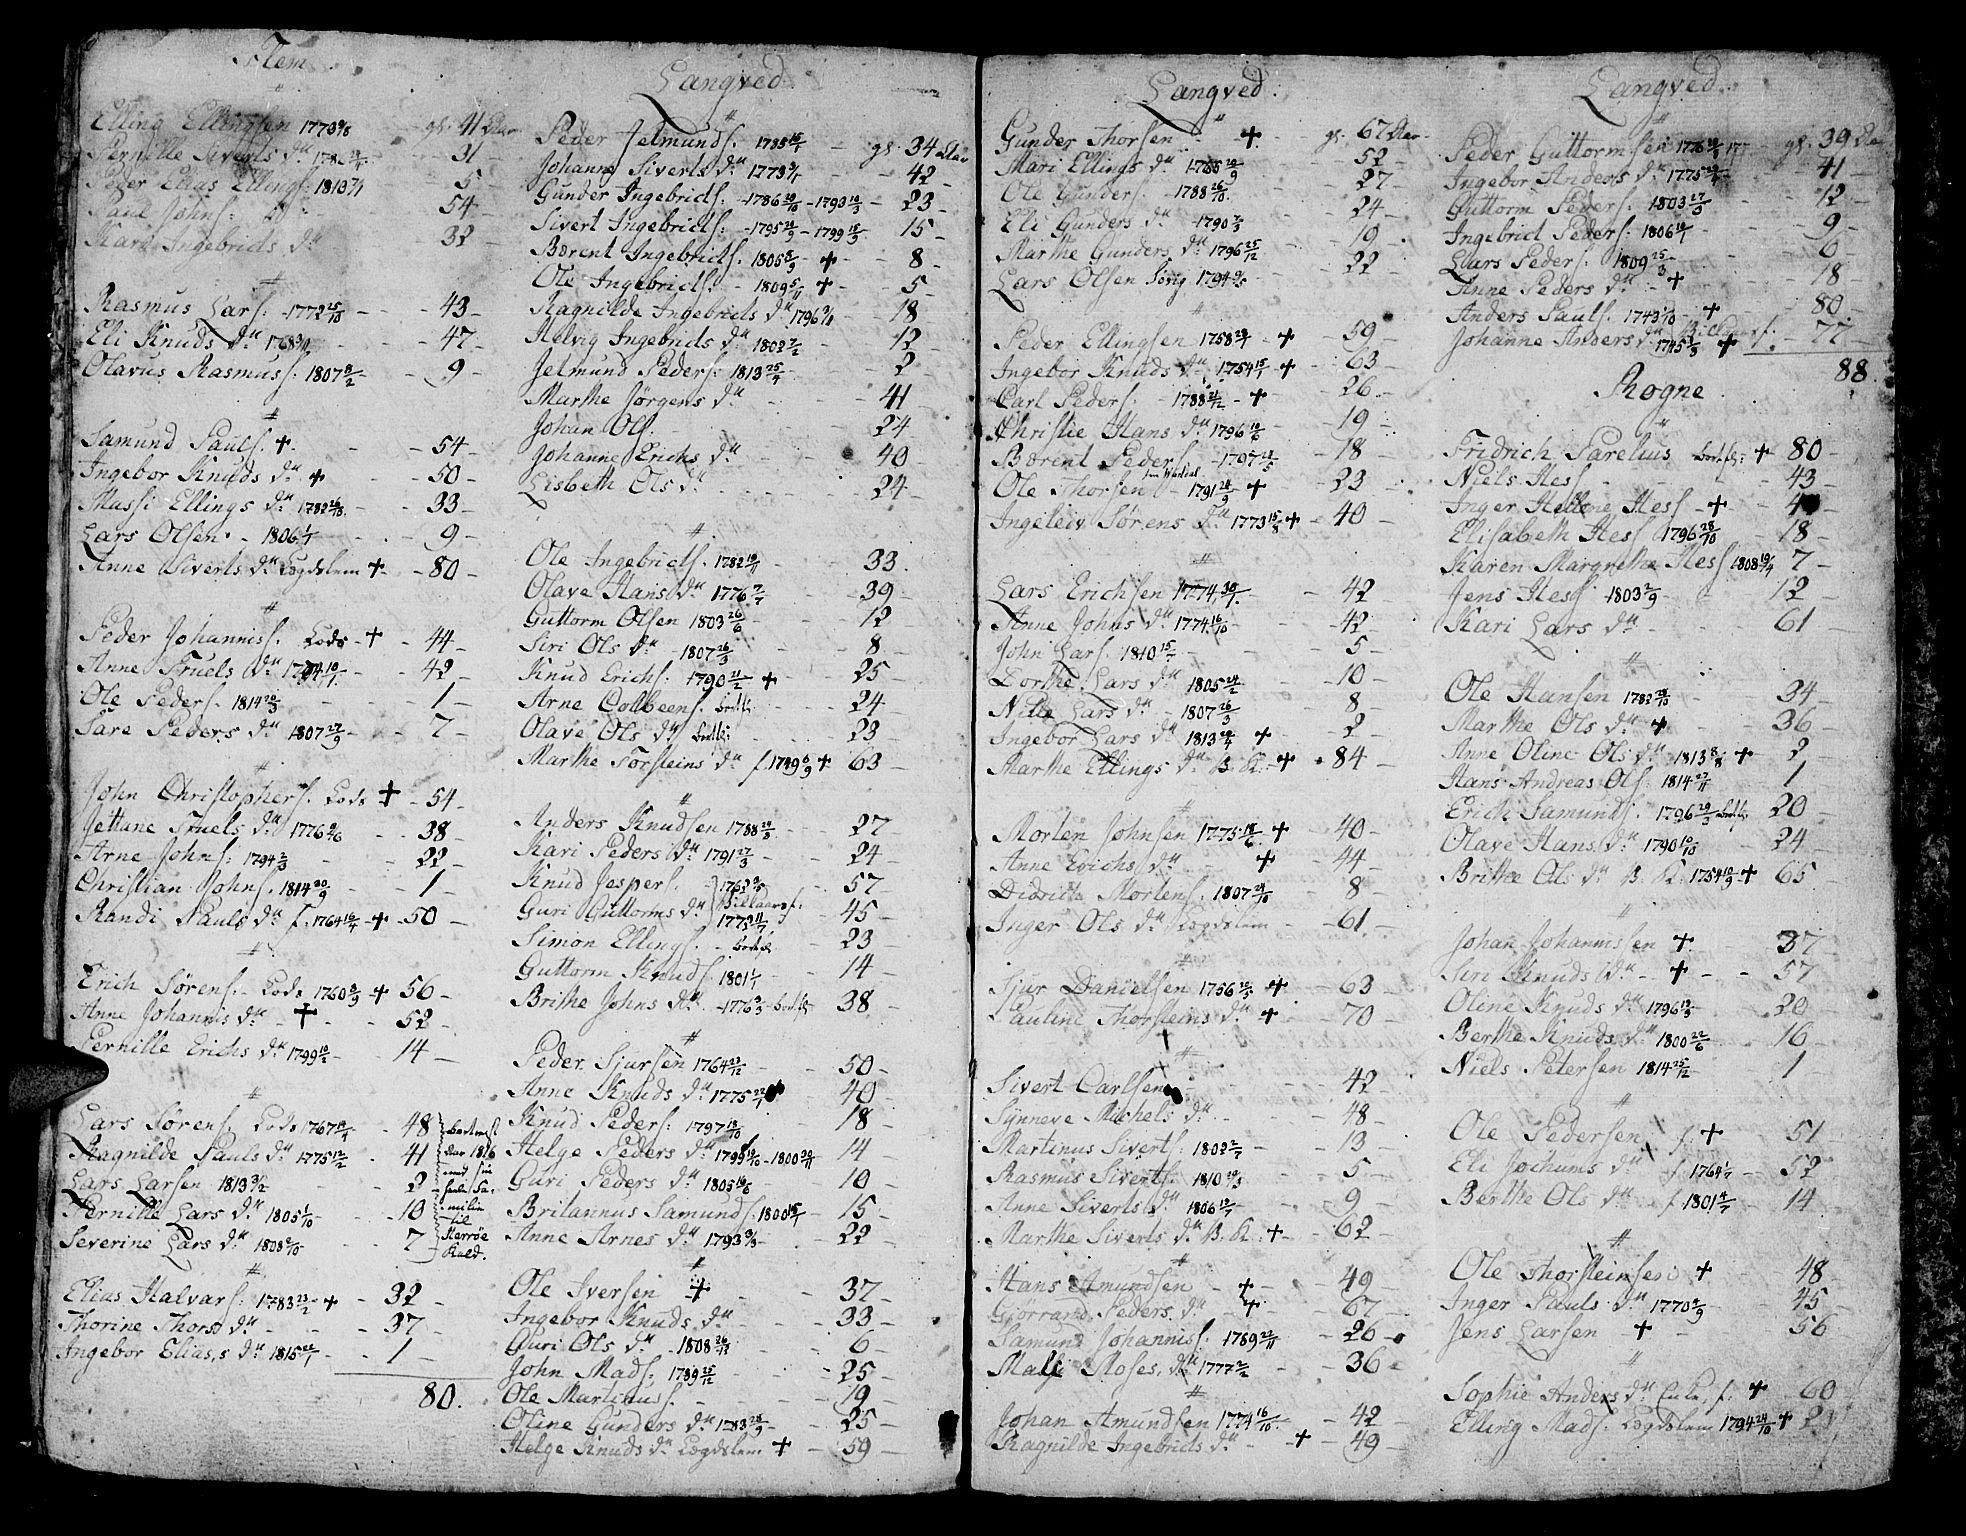 Flem
Elling Ellingsen 1773 - gl. 41 Aar
Pernille Siverts dr - 31
Peder Elias Ellings: 1810 - 5
Paul Johns: - 54
Kari Ingebrids dr - 32
Rasmus Lars: 1772 25/10 - 43
Eli Knuds dr 1768 - 47
Olavus Rasmuss: 1807 8/2 - 9
Samund Pauls: + - 54
Ingebor Knuds dr + - 50
Massi Ellings dr 1782 - 33
Lars Olsen - 1806 1/1 - 9
Anne Siverts dr Lægdslem + - 80
Peder Johanniss: Lods + - 44
Anne Truels dr - 42
Ole Peders: 1814 20/3 - 1
Sare Peders dr 1807 27/9 - 7
John Christophers: Lods + - 54
Jettane Truels dr 1776 - 38
Arne Johns: 1794 2/3 - 22
Christian Johns: 1814 20/9 - 1
Randi Pauls dr f. 1764 16/4 + 50
Erich Sørens: Lods 1760 8/9 + 56
Anne Johannis dr + - 52
Pernille Erichs dr 1799 10/2 - 14
Lars Sørens: Lods 1767 - 48
Ragnilde Pauls dr 1775 12/2 - 41
Lars Larsen 1813 3/2 - 2
Pernille Lars dr 1805 1/10 - 10
Severine Lars dr 1808 - 7
bortreist
Aar 1816
med sin
heele Fa-
milie
til
Herrøe
Kald.
Elias Halvars: 1783 23/2 + 32
Thorine Thors dr - 37
Ingebor Elias,s dr 1815 - 1
80.
Langved
Peder Jelmunds: 1785 15/1 - gl. 34 Aar
Johanne Siverts dr 1773 - 42
Gunder Ingebrids: 1786 20/10 - 1793 10/3 - 23
Sivert Ingebrids: 1795 28/9 - 1799 15/9 - 15
Bærent Ingebrids: 1805 8/9 + 8
Ole Ingebrids: 1809 5/11 + 5
Ragnilde Ingebrids dr 1796 - 18
Helvig Ingebrids dr 1802 7/2 - 12
Jelmund Peders: 1813 25/4 - 2
Marthe Jørgens dr - 41
Johan Ols: - 24
Johanne Erichs dr - 40
Lisbeth Ols dr - 24
Ole Ingebrids: 1782 19/11 - 33
Olave Hans dr 1776 7/7 - 39
Guttorm Olsen 1803 26/6 - 12
Siri Ols dr 1807 26/3 - 8
Knud Erichs: 1790 21/2 + 25
Arne Colbeens: - 24
Olave Ols dr - 23
Marthe Torsteins dr f. 1749 6/9 + 63
Anders Knudsen 1788 - 27
Kari Peders dr 1791 27/3 - 24
Knud Jespers: 1762 - 57
Guri Guttorms dr 1772 11/7 - 45
Simon Ellings: - 23
Guttorm Knuds: 1801 1/1 - 14
Brithe Johns dr 1776 - 38
Peder Sjursen 1764 23/12 - 50
Anne Knuds dr 1775 - 40
Knud Peders: 1797 13/10 - 18
Helge Peders dr 1799 - 1800 - 14
Guri Peders dr 1805 - 10
Britannus Samunds: 1800 - 15
Anne Arnes dr 1793 - 22
Ole Iversen + - 37
Ingebor Knuds dr - 33
Guri Ols dr 1808 - 6
John Mads: 1789 25/12 - 25
Ole Martinus: - 19
Oline Gunders dr 1783 28/9 - 25
Helge Knuds dr Lægdslem + - 59
Langved.
Gunder Thorsen + - gl. 67 Aar
Mari Ellings dr 1765 - 52
Ole Gunders: 1788 26/10 - 27
Eli Gunders dr 1790 7/3 - 24
Marthe Gunders dr 1796 25/12 - 19
Lars Olsen Sørig 1794 - 22
Peder Ellingsen 1758 + 59
Ingebor Knuds dr 1754 15/1 + 63
Carl Peders: 1788 21/12 + 26
Christie Hans dr 1796 19/6 - 19
Bærent Peders: 1797 - 18
Ole Thorsen 1791 24/9 + 23
Ingeleiv Sørens dr 1773 15/8 + 40
Lars Erichsen 1774 30/1 - 42
Anne Johns dr 1774 16/10 - 42
John Lars: 1810 15/7 - 5
Dorthe Lars dr 1805 24/2 - 10
Nille Lars dr 1807 26/3 - 8
Ingebor Lars dr 1813 + 2
Marthe Ellings dr B. K. + 84
Morten Johnsen 1775 18/6 + 40
Anne Erichs dr + 44
Didrich Mortens: 1807 - 8
Inger Ols dr Lægdslem - 61
Sjur Danielsen 1756 + 63
Pauline Thorsteins dr + 70
Sivert Carlsen - 42
Synneve Michels dr - 48
Martinus Siverts: 1802 2/7 - 13
Rasmus Siverts: 1810 - 5
Anne Siverts dr 1806 - 9
Marthe Siverts dr B. K. + 62
Hans Amundsen + 49
Gjorrand Peders dr + 67
Samund Johannis: 1789 22/11 - 26
Massi Moses, dr 1777 2/2 - 36
Johan Amundsen 1774 16/10 - 42
Ragnilde Ingebrids dr + 49
Langved.
Peder Guttormsen 1776 - gl. 39 Aar
Ingebor Anders dr 1775 - 41
Guttorm Peders: 1803 27/3 - 12
Ingebrid Peders: 1806 19/1 - 9
Lars Peders: 1809 25/3 - 6
Anne Peders dr + 18
Anders Pauls: 1743 1/10 + 80
Johanne Anders dr 1745 + - 77
88.
Rogne.
Fridrich Parelius + 80
Niels Hess - 43
Inger Hellene Hess + 4
Elisabeth Hess 1796 28/10 - 18
Karen Margrethe Hess 1808 19/4 7
Jens Hess 1803 2/9 - 12
Kari Lars dr - 61
Ole Hansen 1782 28/10 - 34
Marthe Ols dr + 36
Anne Oline Ols dr 1813 8/8 + 2
Hans Andreas Ols: 1814 27/11 - 1
Erich Samunds: 1796 29/3 - 20
Olave Hans dr 1790 10/10 - 24
Brithe Ols dr B. K. 1754 10/9 + 65
Johan Johannissen + 37
Siri Knuds dr + 57
Oline Knuds dr 1796 13/3 - 20
Berthe Knuds dr 1800 22/6 - 16
Niels Petersen 1814 25/12 - 1
Ole Pedersen f. + 51
Eli Jochums dr f. 1764 1/7 - 52
Berthe Ols dr f. 1801 4/7 - 14
Ole Thorsteinsen + 48
Inger Pauls dr 1770 8/9 - 45
Jens Larsen + 56
Sophie Anders dr Enke f. + 60
Elling Mads: Lægdslem 1794 24/10 +